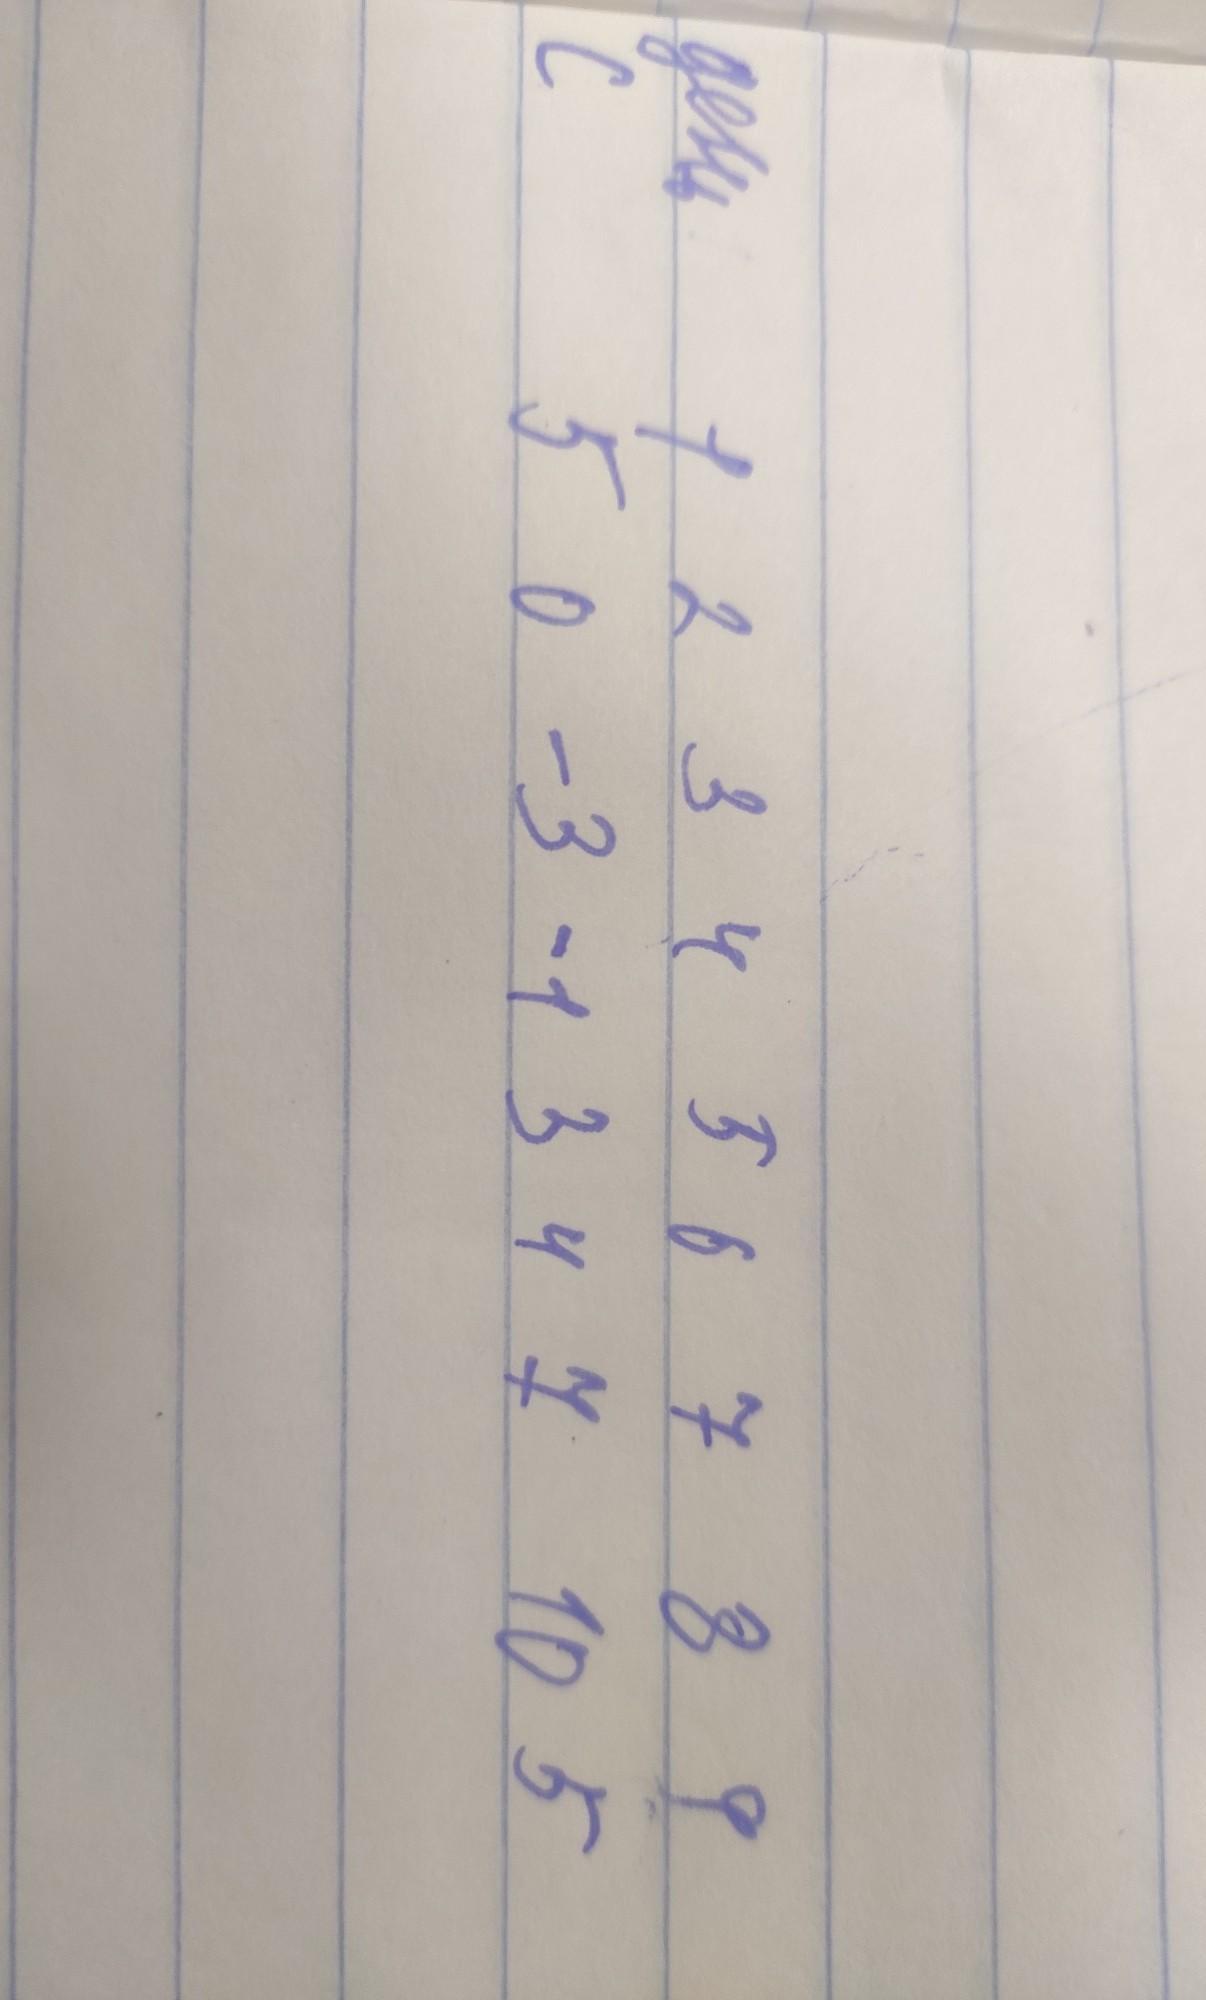 день 1 2 3 4 5 6 7 8 9
C 5 0 -3 -1 3 4 7 10 5